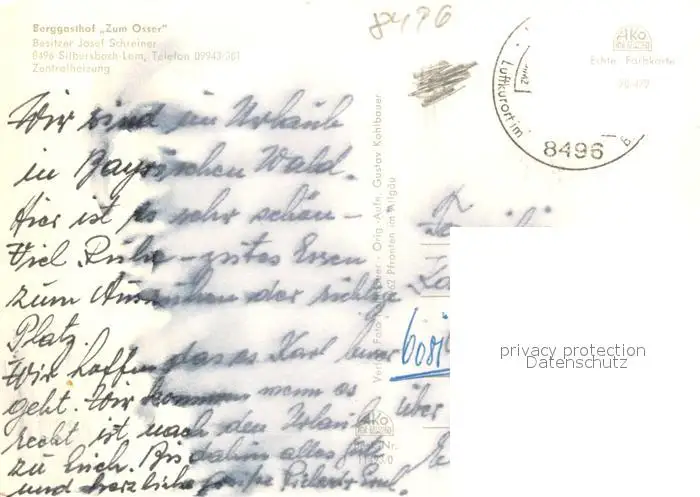 Berggasthof „Zum Osser"
Besitzer Josef Schreiner
8496 Silbersbach-Lam, Telefon 09943/361
Zentralheizung
8496
AKO
Echte Farbkarte
Luftkurort im
8496
Wir sind im Urlaub
in Bayrischen Wald.
Hier ist es sehr schön –
Viel Ruhe – gutes Essen
zum Ausruhen der richtige
Platz.
Wir hoffen das es Karl
geht. Wir kommen wenn es
recht ist, nach den Urlaub
zu Euch. Bis dahin alles
und herzliche
über
Orig.-Aufn. Gustav Kohlbauer
Pfronten im Allgäu
AKO
privacy protection
Datenschutz